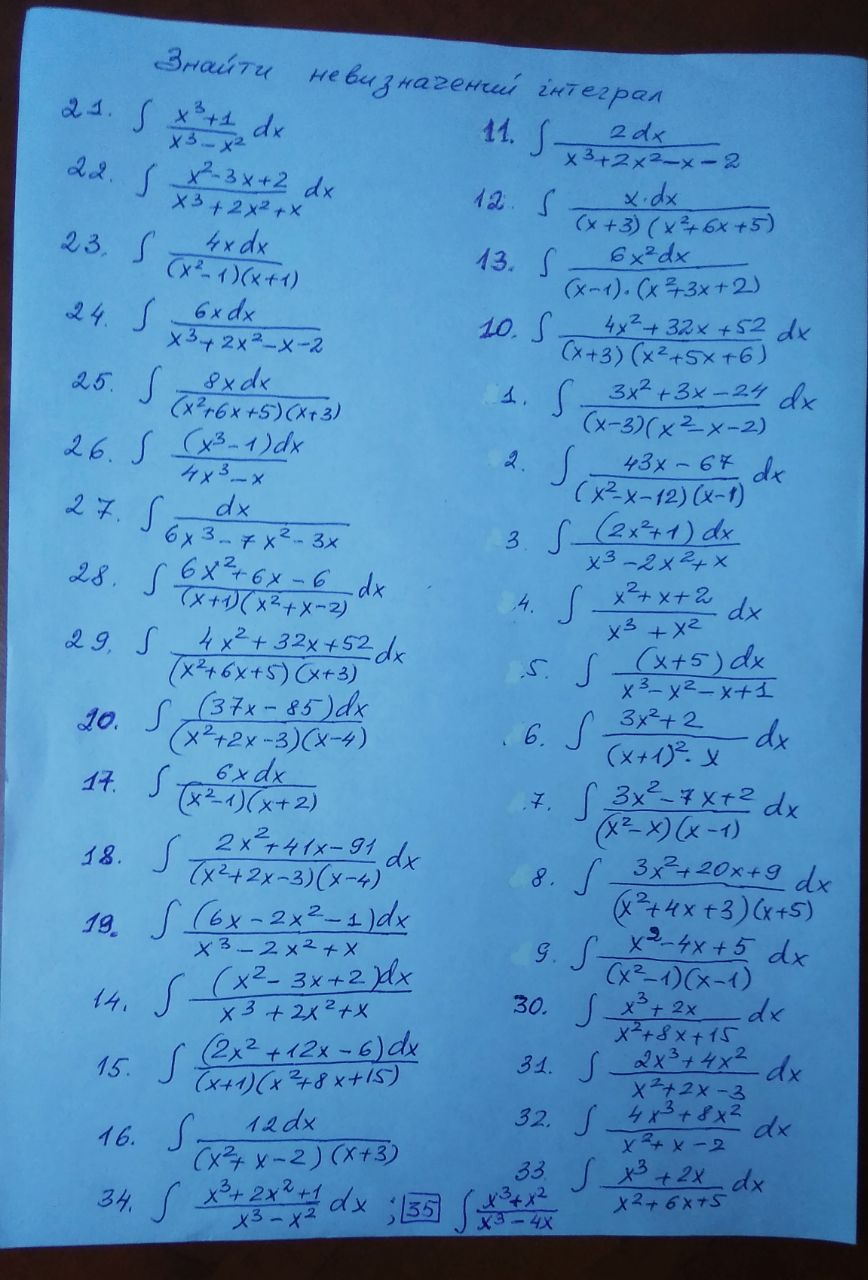 Знайти невизначений інтеграл
21. ∫ (x³+1)/(x³-x²) dx
22. ∫ (x²-3x+2)/(x³+2x²+x) dx
23. ∫ 4xdx/((x²-1)(x+1))
24. ∫ 6xdx/(x³+2x²-x-2)
25. ∫ 8xdx/((x²+6x+5)(x+3))
26. ∫ (x³-1)dx/(4x³-x)
27. ∫ dx/(6x³-7x²-3x)
28. ∫ (6x²+6x-6)/((x+1)(x²+x-2)) dx
29. ∫ (4x²+32x+52)/((x²+6x+5)(x+3)) dx
20. ∫ (37x-85)dx/((x²+2x-3)(x-4))
17. ∫ 6xdx/((x²-1)(x+2))
18. ∫ (2x²+41x-91)/((x²+2x-3)(x-4)) dx
19. ∫ (6x-2x²-1)dx/(x³-2x²+x)
14. ∫ (x²-3x+2)dx/(x³+2x²+x)
15. ∫ (2x²+12x-6)dx/((x+1)(x²+8x+15))
16. ∫ 12dx/((x²+x-2)(x+3))
34. ∫ (x³+2x²+1)/(x³-x²) dx ; 35 ∫ (x³+x²)/(x³-4x)
11. ∫ 2dx/(x³+2x²-x-2)
12. ∫ x·dx/((x+3)(x²+6x+5))
13. ∫ 6x²dx/((x-1)·(x²+3x+2))
10. ∫ (4x²+32x+52)/((x+3)(x²+5x+6)) dx
1. ∫ (3x²+3x-24)/((x-3)(x²-x-2)) dx
2. ∫ (43x-67)/((x²-x-12)(x-1)) dx
3. ∫ (2x²+1)dx/(x³-2x²+x)
4. ∫ (x²+x+2)/(x³+x²) dx
5. ∫ (x+5)dx/(x³-x²-x+1)
6. ∫ (3x²+2)/((x+1)²·x) dx
7. ∫ (3x²-7x+2)/((x²-x)(x-1)) dx
8. ∫ (3x²+20x+9)/((x²+4x+3)(x+5)) dx
9. ∫ (x²-4x+5)/((x²-1)(x-1)) dx
30. ∫ (x³+2x)/(x²+8x+15) dx
31. ∫ (2x³+4x²)/(x²+2x-3) dx
32. ∫ (4x³+8x²)/(x²+x-2) dx
33 ∫ (x³+2x)/(x²+6x+5) dx